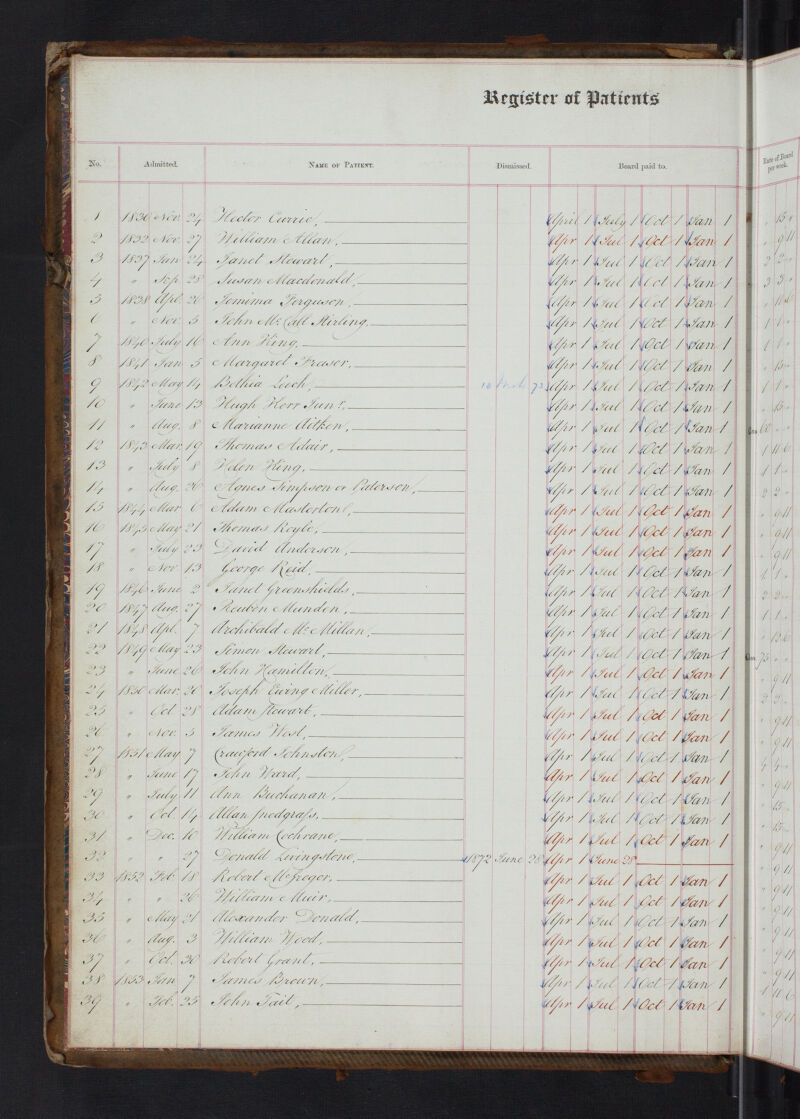 Register of Patients
No. Admitted. Name of Patient. Dismissed. Board paid to. Rate of Board per week.
1 1830 Nov 24 Hector Currie, April 1 July 1 Oct 1 Jan 1 " 15 "
2 1832 Nov. 27 William Allan, Apr 1 Jul 1 Oct 1 Jan 1 " 9 11
3 1837 Jan 24 Janet Stewart, Apr 1 Jul 1 Oct 1 Jan 1 2 2 "
4 " Sep 28 Susan Macdonald, Apr 1 Jul 1 Oct 1 Jan 1 3 3 "
5 1838 Apl. 26 Jemima Ferguson, Apr 1 Jul 1 Oct 1 Jan 1
6 " Nov. 5 John McCall Stirling, Apr 1 Jul 1 Oct 1 Jan 1 1 1 "
7 1840 July 16 Ann King, Apr 1 Jul 1 Oct 1 Jan 1 1 1 "
8 1841 Jan 5 Margaret Fraser, Apr 1 Jul 1 Oct 1 Jan 1 " 15 "
9 1842 May 14 Bethia Leech, Apr 1 Jul 1 Oct 1 Jan 1 1 1 "
10 " June 13 Hugh Kerr Junr. Apr 1 Jul 1 Oct 1 Jan 1 " 15 "
11 " Aug. 8 Marianne Aitken, Apr 1 Jul 1 Oct 1 Jan 1 60
12 1843 Mar. 19 Thomas Adair, Apr 1 Jul 1 Oct 1 Jan 1 1 11 6
13 " July 8 Helen King, Apr 1 Jul 1 Oct 1 Jan 1 1 1 "
14 " Aug. 26 Agnes Simpson or Paterson, Apr 1 Jul 1 Oct 1 Jan 1 2 2 "
15 1844 Mar 6 Adam Masterton, Apr 1 Jul 1 Oct 1 Jan 1 " 9 11
16 1845 May 21 Thomas Boyle, Apr 1 Jul 1 Oct 1 Jan 1 " 9 11
17 " July 23 David Anderson, Apr 1 Jul 1 Oct 1 Jan 1 " 9 11
18 " Nov 13 George Reid, Apr 1 Jul 1 Oct 1 Jan 1 1 1 "
19 1846 June 2 Janet Greenshields, Apr 1 Jul 1 Oct 1 Jan 1 2 2 "
20 1847 Aug. 27 Reuben Munden, Apr 1 Jul 1 Oct 1 Jan 1 1 1 "
21 1848 Apl. 7 Archibald McMillan, Apr 1 Jul 1 Oct 1 Jan 1 " 12 6
22 1849 May 23 Simon Stewart, Apr 1 Jul 1 Oct 1 Jan 1 75
23 " June 26 John Hamilton, Apr 1 Jul 1 Oct 1 Jan 1 " 9 11
24 1850 Mar. 26 Joseph Ewing Miller, Apr 1 Jul 1 Oct 1 Jan 1 2 2 "
25 " Oct 28 Adam Stewart, Apr 1 Jul 1 Oct 1 Jan 1 " 9 11
26 " Nov. 5 James West, Apr 1 Jul 1 Oct 1 Jan 1 " 9 11
27 1851 May 7 Crawford Johnston, Apr 1 Jul 1 Oct 1 Jan 1 4 4 "
28 " June 17 John Ward, Apr 1 Jul 1 Oct 1 Jan 1 " 9 11
29 " July 11 Ann Buchanan, Apr 1 Jul 1 Oct 1 Jan 1 " 15 "
30 " Oct. 14 Allan Snodgrass, Apr 1 Jul 1 Oct 1 Jan 1 " 15 "
31 " Dec. 10 William Cochrane, Apr 1 Jul 1 Oct 1 Jan 1 " 9 11
32 " " 27 Donald Livingstone, 1872 June 28 Apr 1 June 28 " 9 11
33 1852 Feb. 18 Robert McGregor, Apr 1 Jul 1 Oct 1 Jan 1 " 9 11
34 " " 26 William Muir, Apr 1 Jul 1 Oct 1 Jan 1 " 9 11
35 " May 21 Alexander Donald, Apr 1 Jul 1 Oct 1 Jan 1 " 9 11
36 " Aug. 3 William Wood, Apr 1 Jul 1 Oct 1 Jan 1 " 9 11
37 " Oct. 30 Robert Grant, Apr 1 Jul 1 Oct 1 Jan 1 " 9 11
38 1853 Jan 7 James Brown, Apr 1 Jul 1 Oct 1 Jan 1 1 11 6
39 " Feb. 25 John Tait, Apr 1 Jul 1 Oct 1 Jan 1 " 9 11